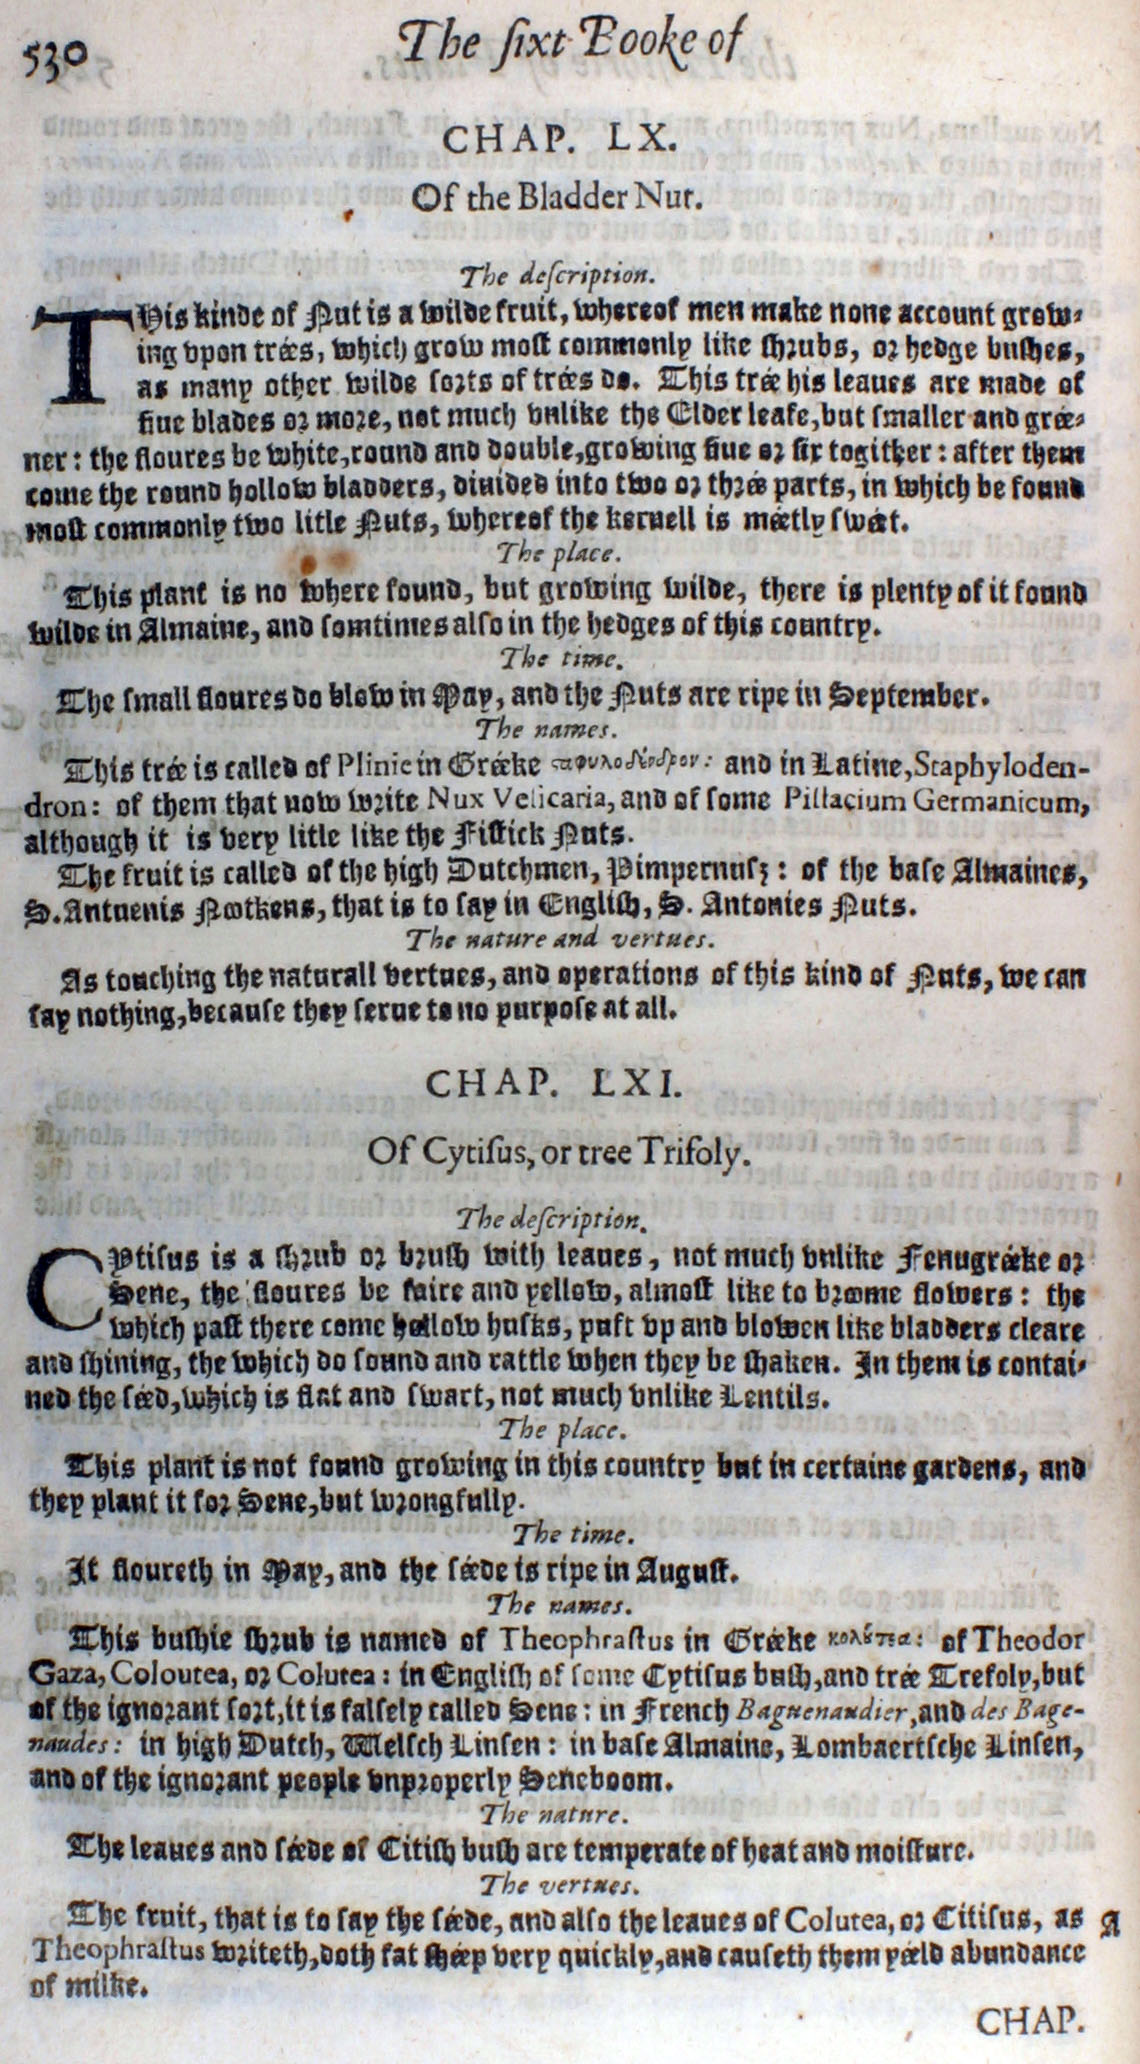 530
The ſixt Booke of
CHAP. LX.
Of the Bladder Nut.
The deſcription.
THis kinde of Nut is a wilde fruit, whereof men make none account grow-
ing vpon trées, which grow moſt commonly like ſhrubs, or hedge buſhes,
as many other wilde ſorts of trées do. This trée his leaues are made of
fiue blades or more, not much vnlike the Elder leafe, but ſmaller and grée-
ner: the floures be white, round and double, growing fiue or ſix togither: after them
come the round hollow bladders, diuided into two or thrée parts, in which be found
moſt commonly two litle Nuts, whereof the kernell is méetly ſwéet.
The place.
This plant is no where found, but growing wilde, there is plenty of it found
wilde in Almaine, and ſomtimes alſo in the hedges of this country.
The time.
The ſmall floures do blow in May, and the Nuts are ripe in September.
The names.
This trée is called of Plinie in Gréeke ςαφυλοδένδρον: and in Latine, Staphyloden-
dron: of them that now write Nux Veſicaria, and of ſome Piſtacium Germanicum,
although it is very litle like the Fiſtick Nuts.
The fruit is called of the high Dutchmen, Pimpernuſz: of the baſe Almaines,
S. Antuenis Nootkens, that is to ſay in Engliſh, S. Antonies Nuts.
The nature and vertues.
As touching the naturall vertues, and operations of this kind of Nuts, we can
ſay nothing, becauſe they ſerue to no purpoſe at all.
CHAP. LXI.
Of Cytiſus, or tree Trifoly.
The deſcription.
CYtiſus is a ſhrub or bruſh with leaues, not much vnlike Fenugréeke or
Sene, the floures be faire and yellow, almoſt like to broome flowers: the
which paſt there come hollow huſks, puft vp and blowen like bladders cleare
and ſhining, the which do ſound and rattle when they be ſhaken. In them is contai-
ned the ſéed, which is flat and ſwart, not much vnlike Lentils.
The place.
This plant is not found growing in this country but in certaine gardens, and
they plant it for Sene, but wrongfully.
The time.
It floureth in May, and the ſéede is ripe in Auguſt.
The names.
This buſhie ſhrub is named of Theophraſtus in Gréeke κολύτεα: of Theodor
Gaza, Coloutea, or Colutea: in Engliſh of ſome Cytiſus buſh, and trée Trefoly, but
of the ignorant ſort, it is falſely called Sene: in French Baguenaudier, and des Bage-
naudes: in high Dutch, Welſch Linſen: in baſe Almaine, Lombaertſche Linſen,
and of the ignorant people vnproperly Seneboom.
The nature.
The leaues and ſéede of Citiſh buſh are temperate of heat and moiſture.
The vertues.
The fruit, that is to ſay the ſéede, and alſo the leaues of Colutea, or Citiſus, as A
Theophraſtus writeth, doth fat ſhéep very quickly, and cauſeth them yéeld abundance
of milke.
CHAP.